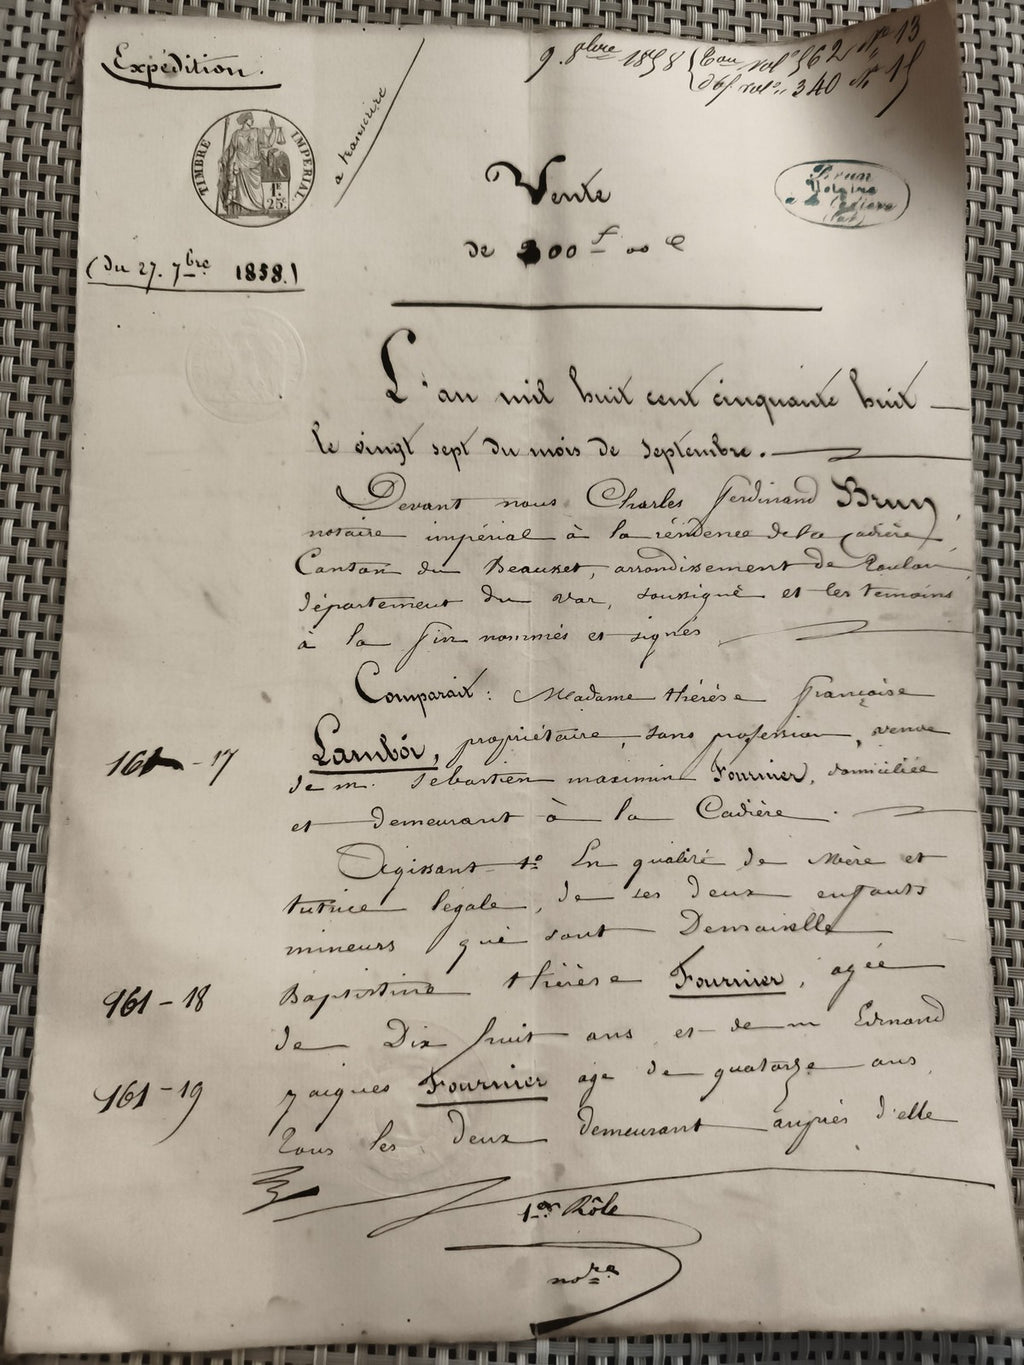 Expédition.
9. 8bre 1858
vol. 562 No 13
vol. 340 No 15
a transcrire
TIMBRE IMPERIAL
1F.
25c.
Vente
de 300 f 00 c
Brun
Notaire
a la Cadière
(Var)
(du 27. 7bre 1858.)
L'an mil huit cent cinquante huit
le vingt sept du mois de septembre.
Devant nous Charles ferdinand Brun,
notaire impérial à la résidence de la Cadière,
Canton du Beausset, arrondissement de Toulon,
département du var, soussigné et les temoins
à la fin nommés et signés
Comparait : Madame thérèse françoise
161 - 17
Lambór, propriétaire, sans profession, veuve
de m. sebastien maximin Fournier, domiciliée
et demeurant à la Cadière.
Agissant 1o En qualité de Mère et
tutrice légale, de ses deux enfants
mineurs qui sont Demoiselle
161 - 18
Baptistine thérèse Fournier, agée
de Dix huit ans et de m Edmond
161 - 19
jacques Fournier age de quatorze ans,
tous les deux demeurant auprès d'elle
1er Rôle
nore